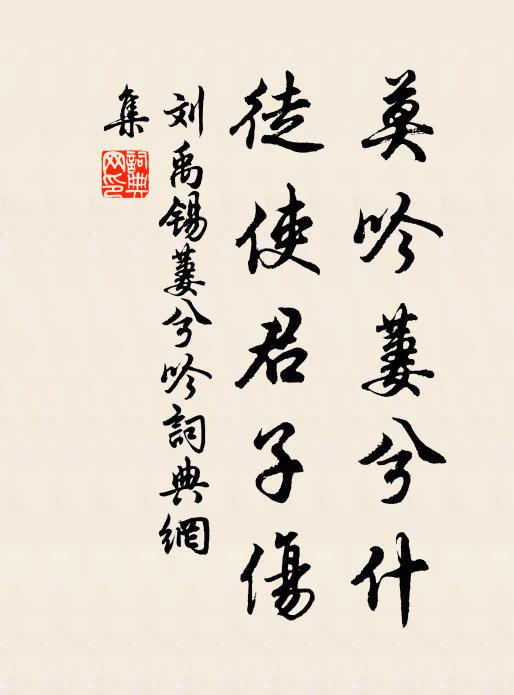 莫吟萋兮什
徒使君子傷
刘禹锡萋兮吟詞典網
集
詞典网印